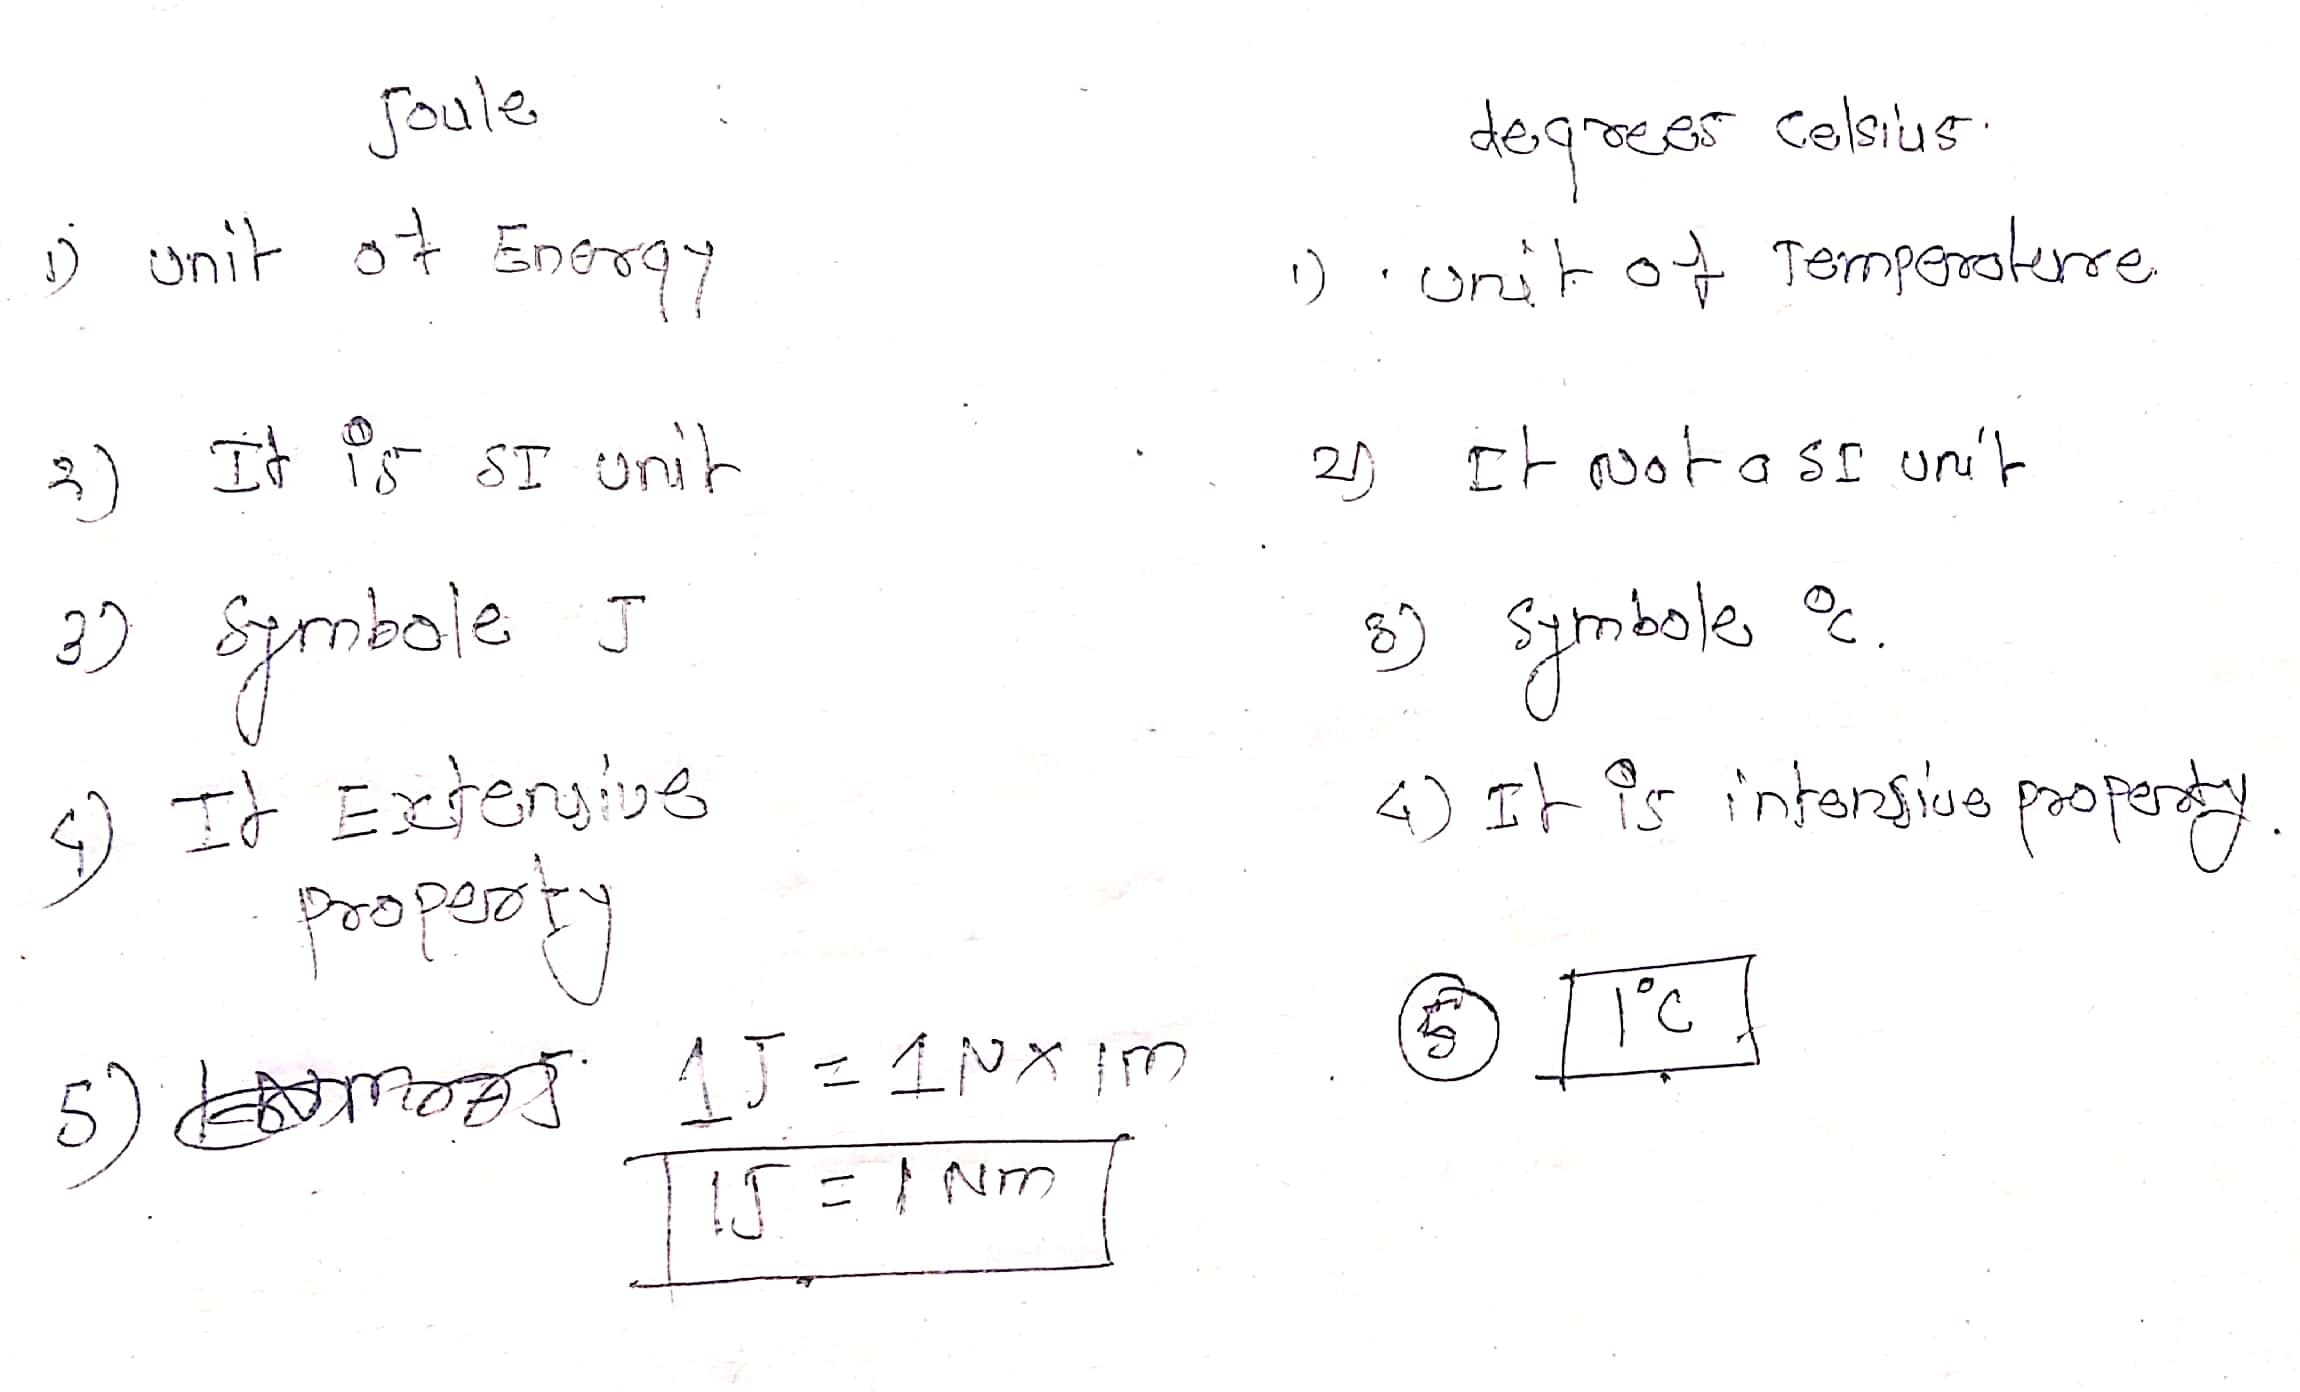 Joule
1) unit of Energy
2) It is SI unit
3) Symbole J
4) It Extensive
property
5) 1J = 1N x 1m
1J = 1 Nm
degrees Celsius.
1) unit of Temperature
2) It Not a SI unit
3) Symbole °c.
4) It is intensive property.
5 1°C